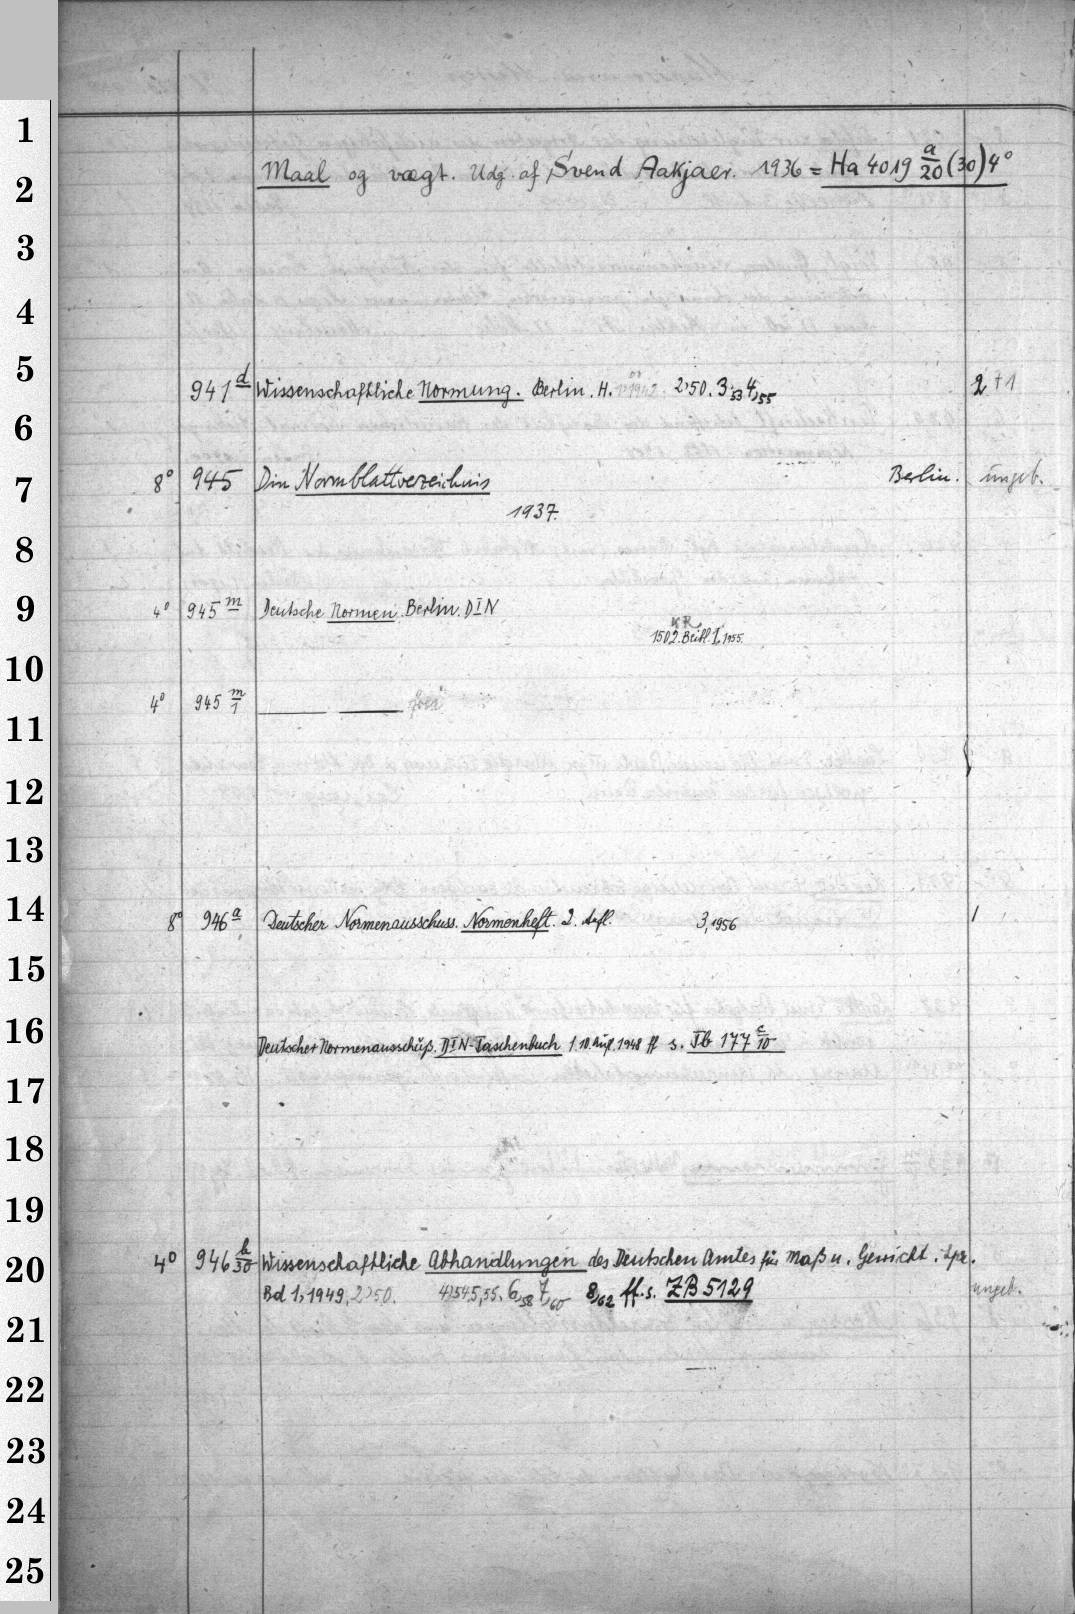 1
2
Maal og vægt. Udg. af Svend Aakjaer. 1936 = Ha 4019 a/20 (30) 4°
3
4
5
941 d Wissenschaftliche Normung. Berlin. H. 1.1942. 2,50. 3,53 4,55 2 + 1
6
7
8° 945 Din Normblattverzeichnis Berlin. ungeb.
1937.
8
9
4° 945 m Deutsche Normen. Berlin. DIN
1502. Beibl. 1, 1955.
10
4° 945 m/1 frei
11
12
13
14
8° 946 a Deutscher Normenausschuss. Normenheft. 2. Aufl. 3, 1956 1
15
16
Deutscher Normenausschuß. DIN-Taschenbuch 1. 10. Aufl. 1948 ff s. Tb 177 c/10
17
18
19
20
4° 946 b/30 Wissenschaftliche Abhandlungen des Deutschen Amtes für Maß u. Gewicht. Lpz.
Bd 1, 1949, 2,50. 4,54 5,55. 6,58 7,60 8,62 ff. s. ZB 5129 ungeb.
21
22
23
24
25